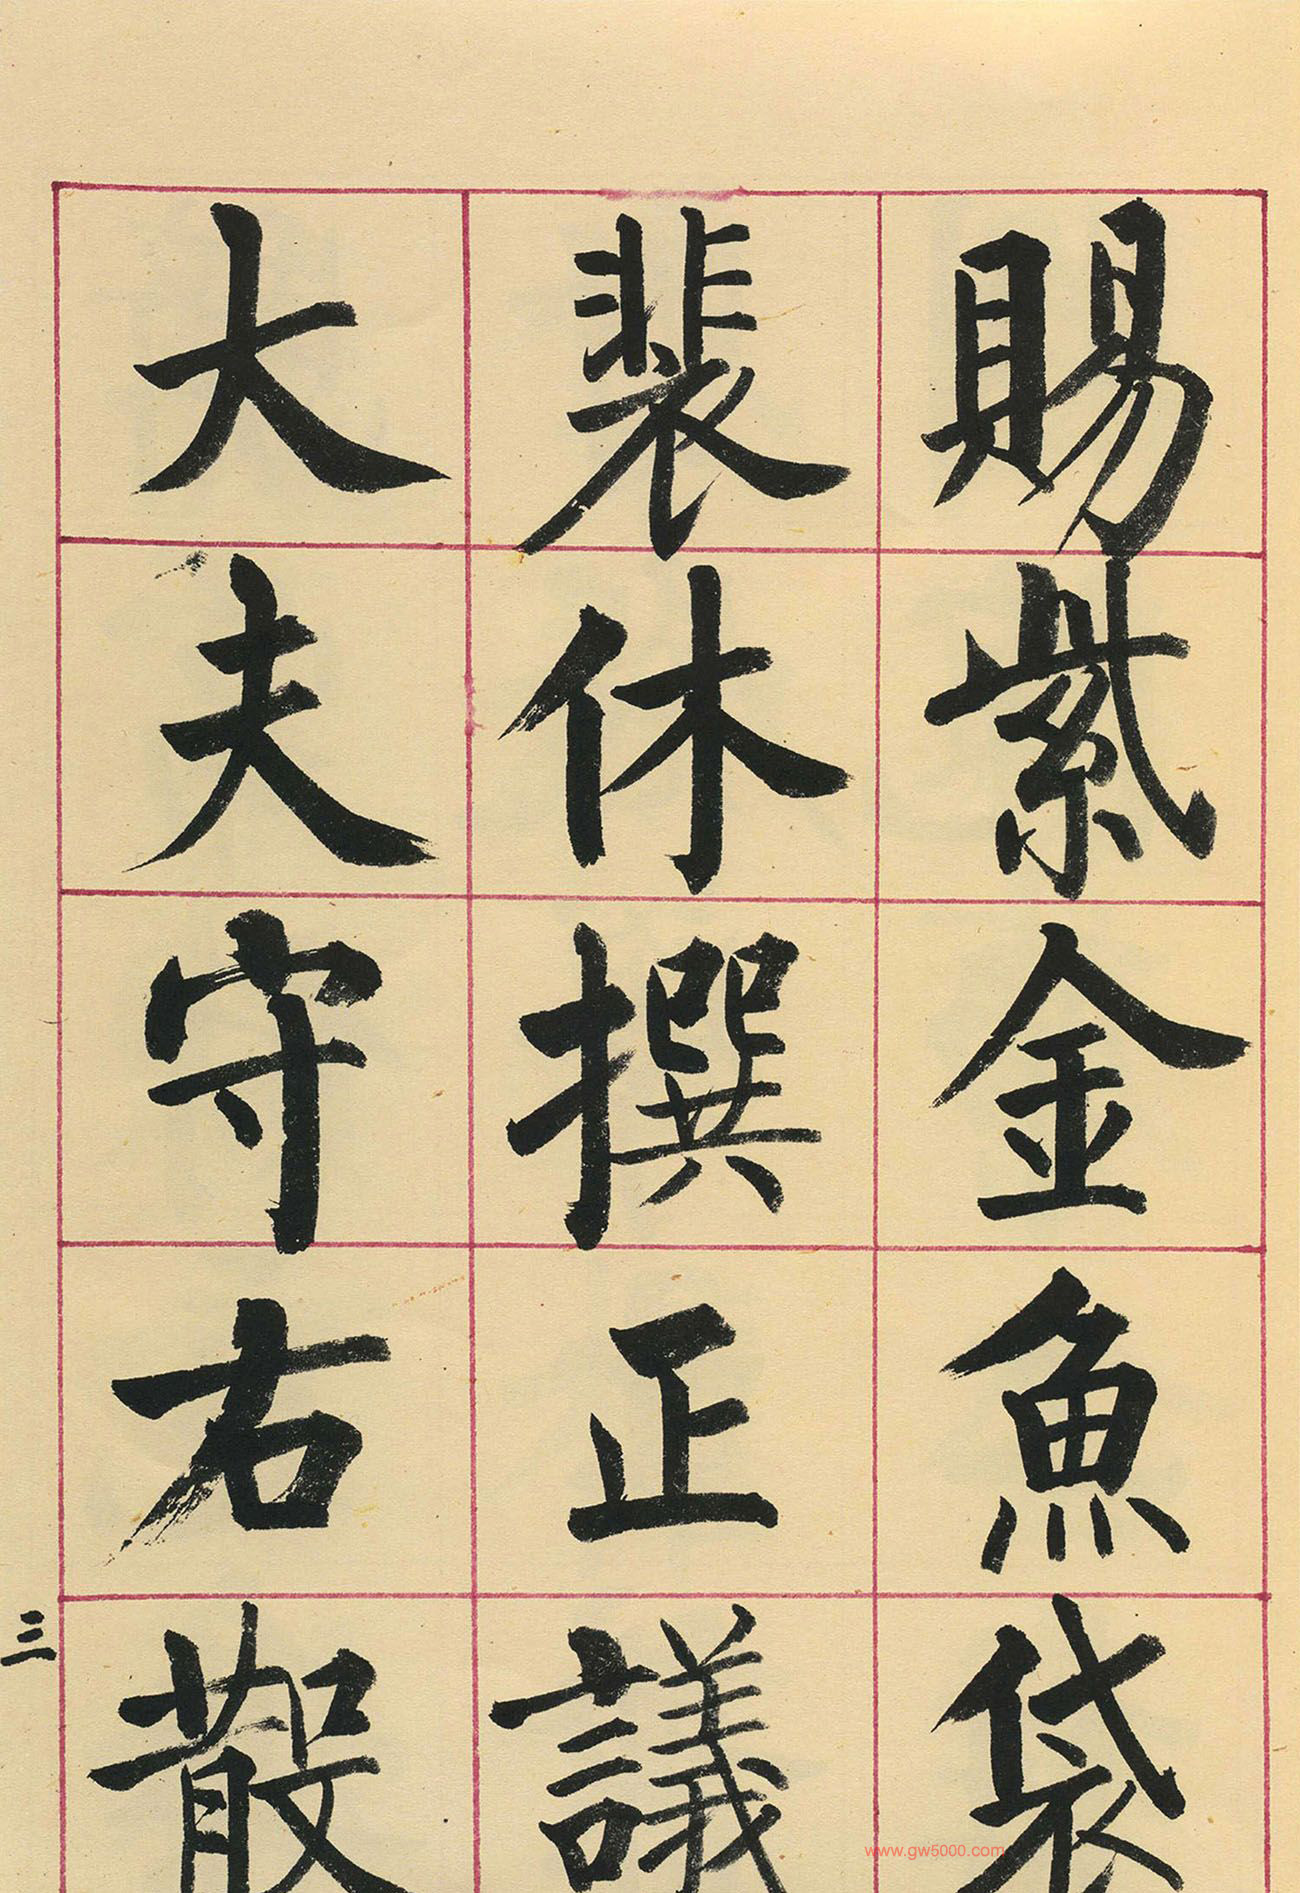 賜紫金魚袋
裴休撰正議
大夫守右散
三
www.gw5000.com